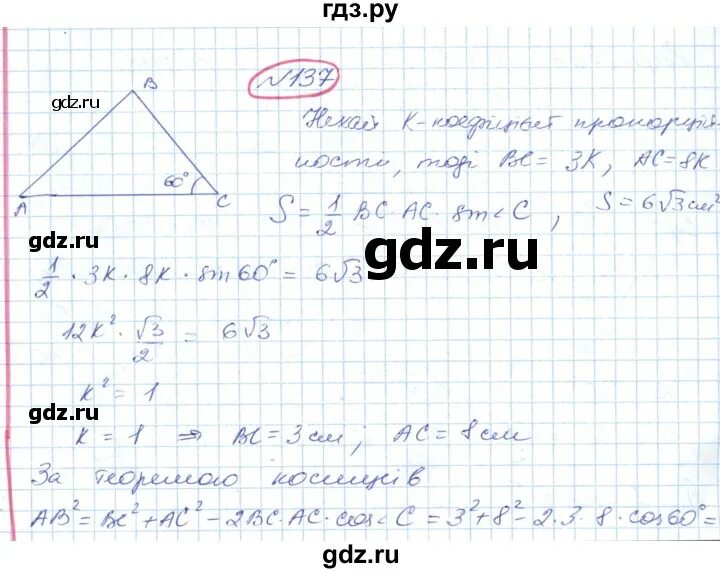 гдз.ру
№137
B
gdz.ru
Нехай K - коефіцієнт пропорцій-
ності, тоді BC = 3K, AC = 8K
60°
A
C
S = 1/2 BC·AC·sin<C, S = 6√3 см²
gdz.ru
gdz.ru
1/2 · 3K · 8K · sin 60° = 6√3
12K² · √3/2 = 6√3
K² = 1
gdz.ru
K = 1 ⇒ BC = 3 см; AC = 8 см
За теоремою косинусів
AB² = BC² + AC² - 2BC·AC·cos<C = 3² + 8² - 2·3·8·cos 60° =
gdz.ru
gdz.ru